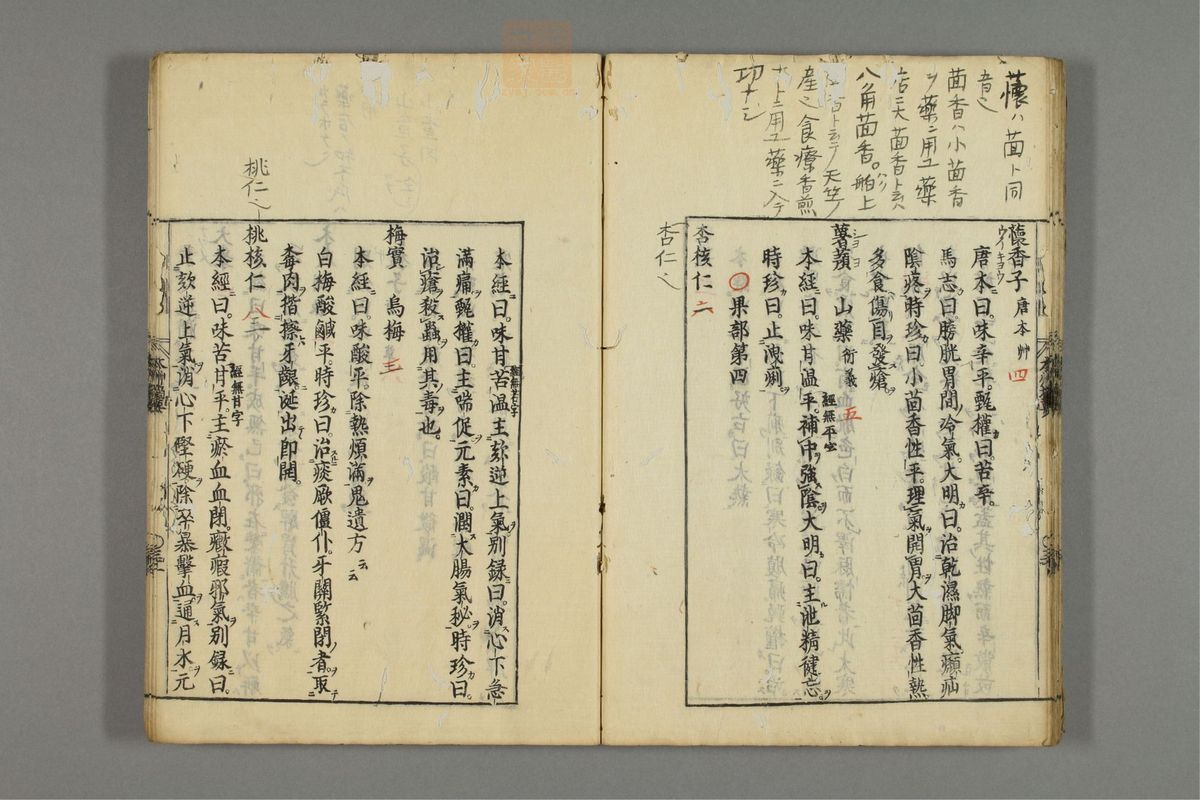 蘹ハ茴ト同
音也
茴香ハ小茴香
ヲ藥ニ用ユ藥
店ニ大茴香ト云ハ
八角茴香。舶上
茴香ト云テ天竺ノ
産也食療香煎
ナトニ用ユ藥ニ入テ
功ナシ
蘹香子 唐本艸 四
ウイキヨウ
唐本曰。味辛平。甄權曰。苦辛。
馬志曰。膀胱胃間冷氣大明曰。治乾濕脚氣㿗疝
陰疼時珍曰。小茴香性平。理氣開胃大茴香性熱
多食傷目發瘡
薯蕷 山藥 衍義 五
シヨヨ
本經曰。味甘溫平。補中強陰大明曰。主泄精健忘
經無平字
時珍曰。止洩痢。
○果部第四
杏核仁 二
杏仁也
本經曰。味甘苦溫主欬逆上氣別録曰。消心下急
經無苦字
滿痛甄權曰。主喘促元素曰。潤大腸氣秘時珍曰。
治瘡殺蟲用其毒也。
梅實 烏梅 三
本經曰。味酸平。除熱煩滿鬼遺方云云
白梅酸鹹平。時珍曰。治痰厥僵仆。牙關緊閉者。取
梅肉揩擦牙齦。涎出即開。
桃核仁 八
桃仁也
本經曰。味苦甘平。主瘀血血閉。癥瘕邪氣別録曰。
經無甘字
止欬逆上氣消心下堅硬除卒暴擊血通月水元